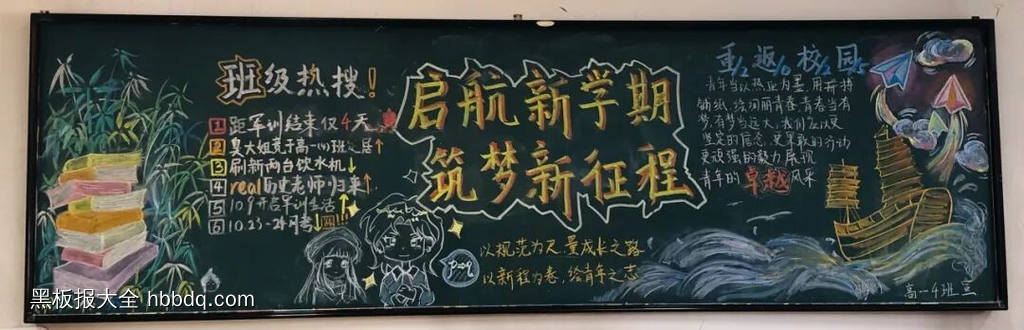 班级热搜!
1 距军训结束仅4天
2 臭大姐贡于高一(4)班之居↑
3 刷新两台饮水机↓
4 real历史老师归来↑
5 10.9开启军训生活↑
6 10.23-24月考↓
启航新学期
筑梦新征程
以规范为尺,量成长之路
以新程为卷,绘青年之志
重返校园
青年当以热血为墨,用奔博
饰纸,绘绚丽青春,青春当有
梦,有梦当远大,我们应以更
坚定的信念,更卓越的行动
更顽强的努力展现
青年的卓越风采
高一4班宣
黑板报大全 hbbdq.com